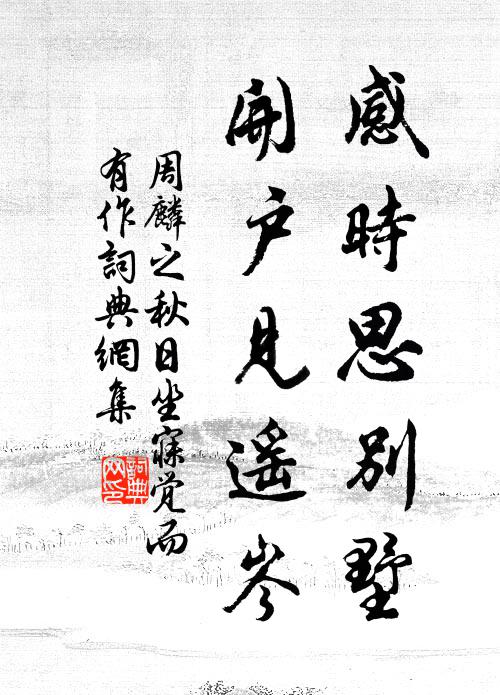 感時思別墅
開户見遥岑
周麟之秋日坐寐觉而
有作詞典網集
詞典網印